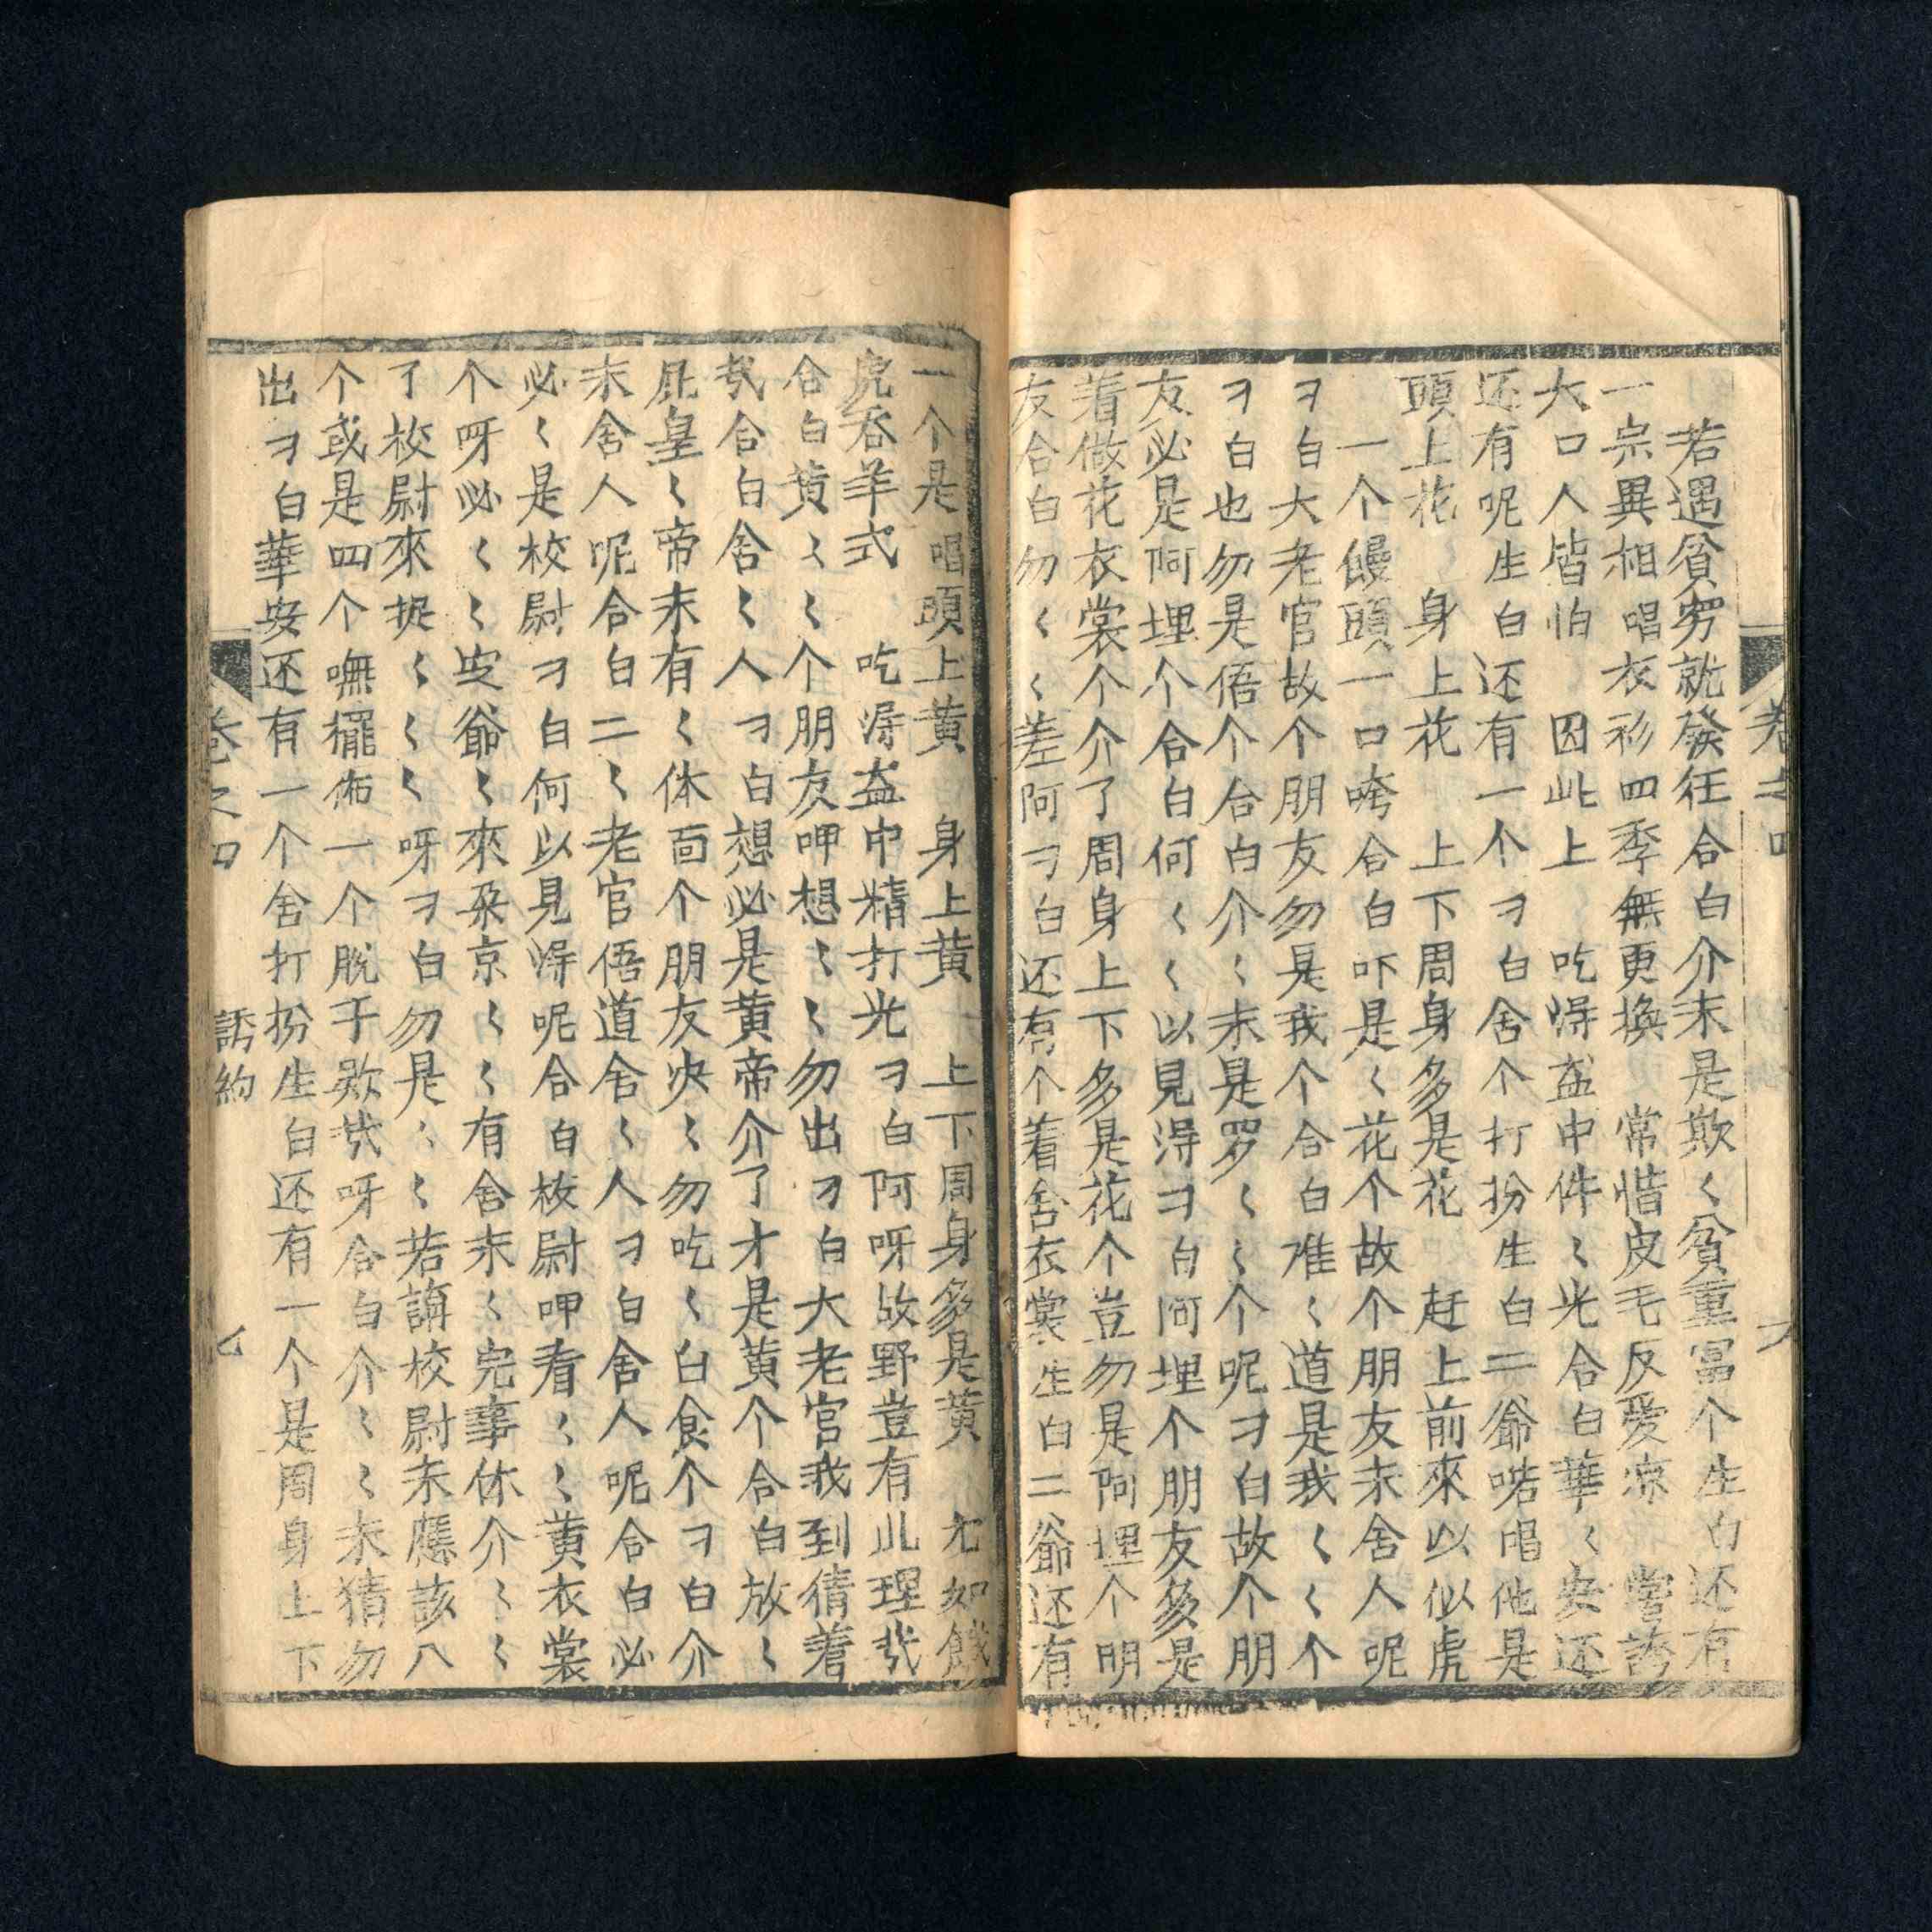 卷之四
六
若遇貧穷就發狂合白介末是欺〻貧重冨个生白还有
一宗異相唱衣衫四季無更換　常惜皮毛反愛凉　嘗誇
大口人皆怕　因此上　吃淂盔中件〻光合白華〻安还
还有呢生白还有一个刁白舍个打扮生白二爺啱唱他是
頭上花　身上花　上下周身多是花　赶上前來以似虎
一个饅頭一口咵合白吓是〻花个故个朋友末舍人呢
刁白大老官故个朋友勿是我个合白难〻道是我〻〻个
刁白也勿是俉个合白介〻末是罗〻〻个呢刁白故个朋
友必是阿埋个合白何〻〻以見淂刁白阿埋个朋友多是
着做花衣裳个介了周身上下多是花个豈勿是阿埋个明
友合白勿〻〻差阿刁白还有个着舍衣裳生白二爺还有
一个是唱頭上黄　身上黄　上下周身多是黄　尤如餓
虎吞羊式　吃淂盔中精打光刁白阿呀故野豈有此理㢤
合白黄〻〻个朋友呷想〻〻勿出刁白大老官我到猜着
㢤合白舍〻人刁白想必是黄帝介了才是黄个合白放〻
屁皇〻帝末有〻体面个朋友决〻勿吃〻白食个刁白介
末舍人呢合白二〻老官俉道舍〻人刁白舍人呢合白必
必〻是校尉刁白何以見淂呢合白校尉呷看〻〻黄衣裳
个呀必〻〻定爺〻來朶京〻〻有舍末〻完事休介〻〻
了校尉來捉〻〻〻呀刁白勿是〻〻若講校尉末應該八
个或是四个嘸擺佈一个脫于欵㢤呀合白介〻〻末猜勿
出刁白華安还有一个舍打扮生白还有一个是周身上下
卷之四
誘約
七